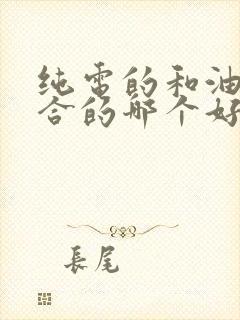 纯雷的和油
合的哪个好
長尾